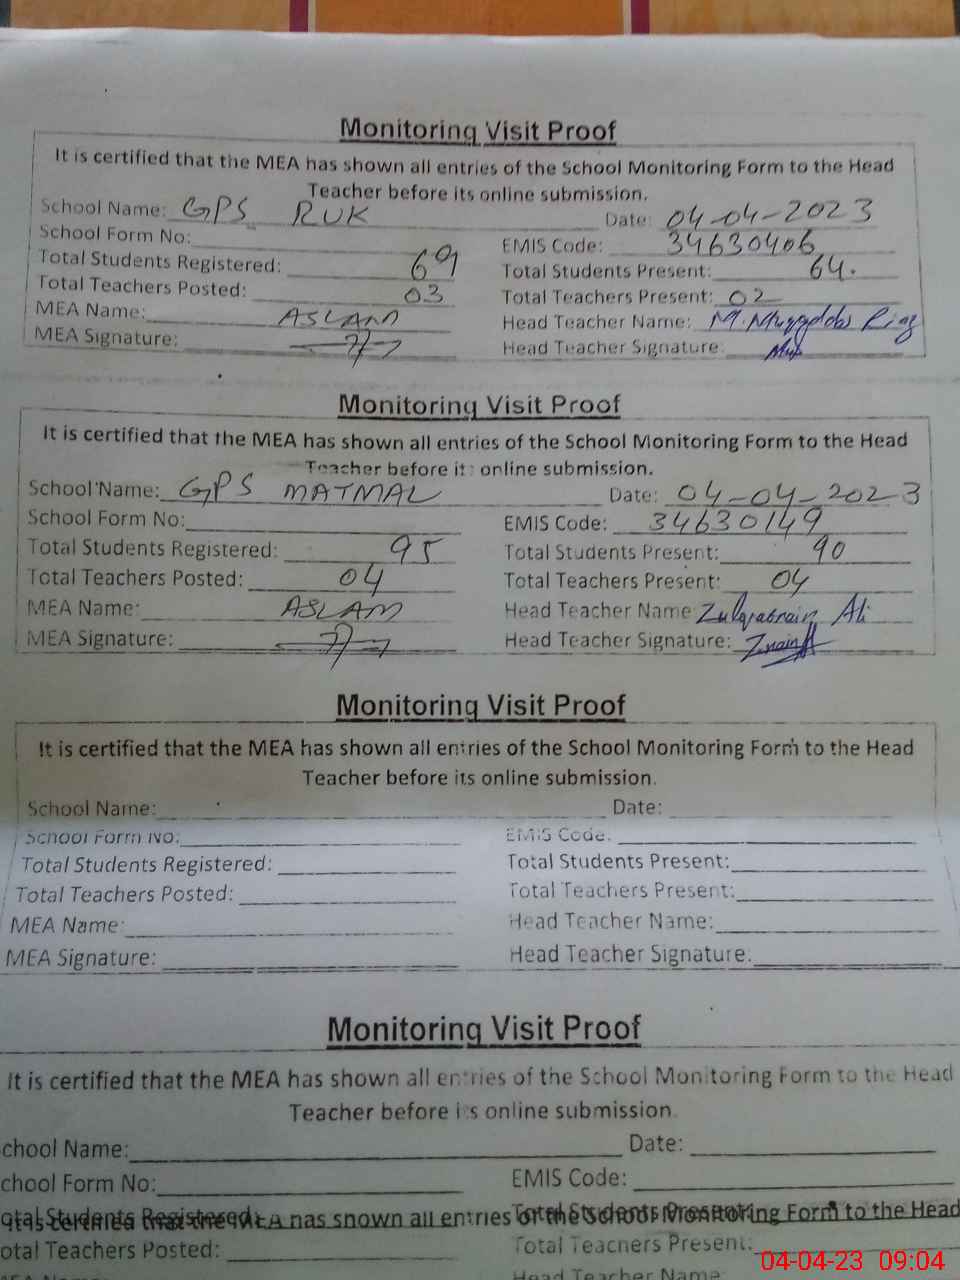 Monitoring Visit Proof
It is certified that the MEA has shown all entries of the School Monitoring Form to the Head
Teacher before its online submission.
School Name: GPS RUK Date: 04-04-2023
School Form No: EMIS Code: 34630406
Total Students Registered: 69 Total Students Present: 64.
Total Teachers Posted: 03 Total Teachers Present: 02
MEA Name: ASLAM Head Teacher Name: M.
MEA Signature: Head Teacher Signature:
Monitoring Visit Proof
It is certified that the MEA has shown all entries of the School Monitoring Form to the Head
Teacher before its online submission.
School Name: GPS MATMAL Date: 04-04-2023
School Form No: EMIS Code: 34630149
Total Students Registered: 95 Total Students Present: 90
Total Teachers Posted: 04 Total Teachers Present: 04
MEA Name: ASLAM Head Teacher Name: Zulqarnain Ali
MEA Signature: Head Teacher Signature:
Monitoring Visit Proof
It is certified that the MEA has shown all entries of the School Monitoring Form to the Head
Teacher before its online submission.
School Name: Date:
School Form No: EMIS Code:
Total Students Registered: Total Students Present:
Total Teachers Posted: Total Teachers Present:
MEA Name: Head Teacher Name:
MEA Signature: Head Teacher Signature:
Monitoring Visit Proof
It is certified that the MEA has shown all entries of the School Monitoring Form to the Head
Teacher before its online submission.
chool Name: Date:
chool Form No: EMIS Code:
otal Students Registered: Total Students Present:
It is certified that the MEA has shown all entries of the School Monitoring Form to the Head
otal Teachers Posted: Total Teachers Present:
Head Teacher Name:
04-04-23 09:04